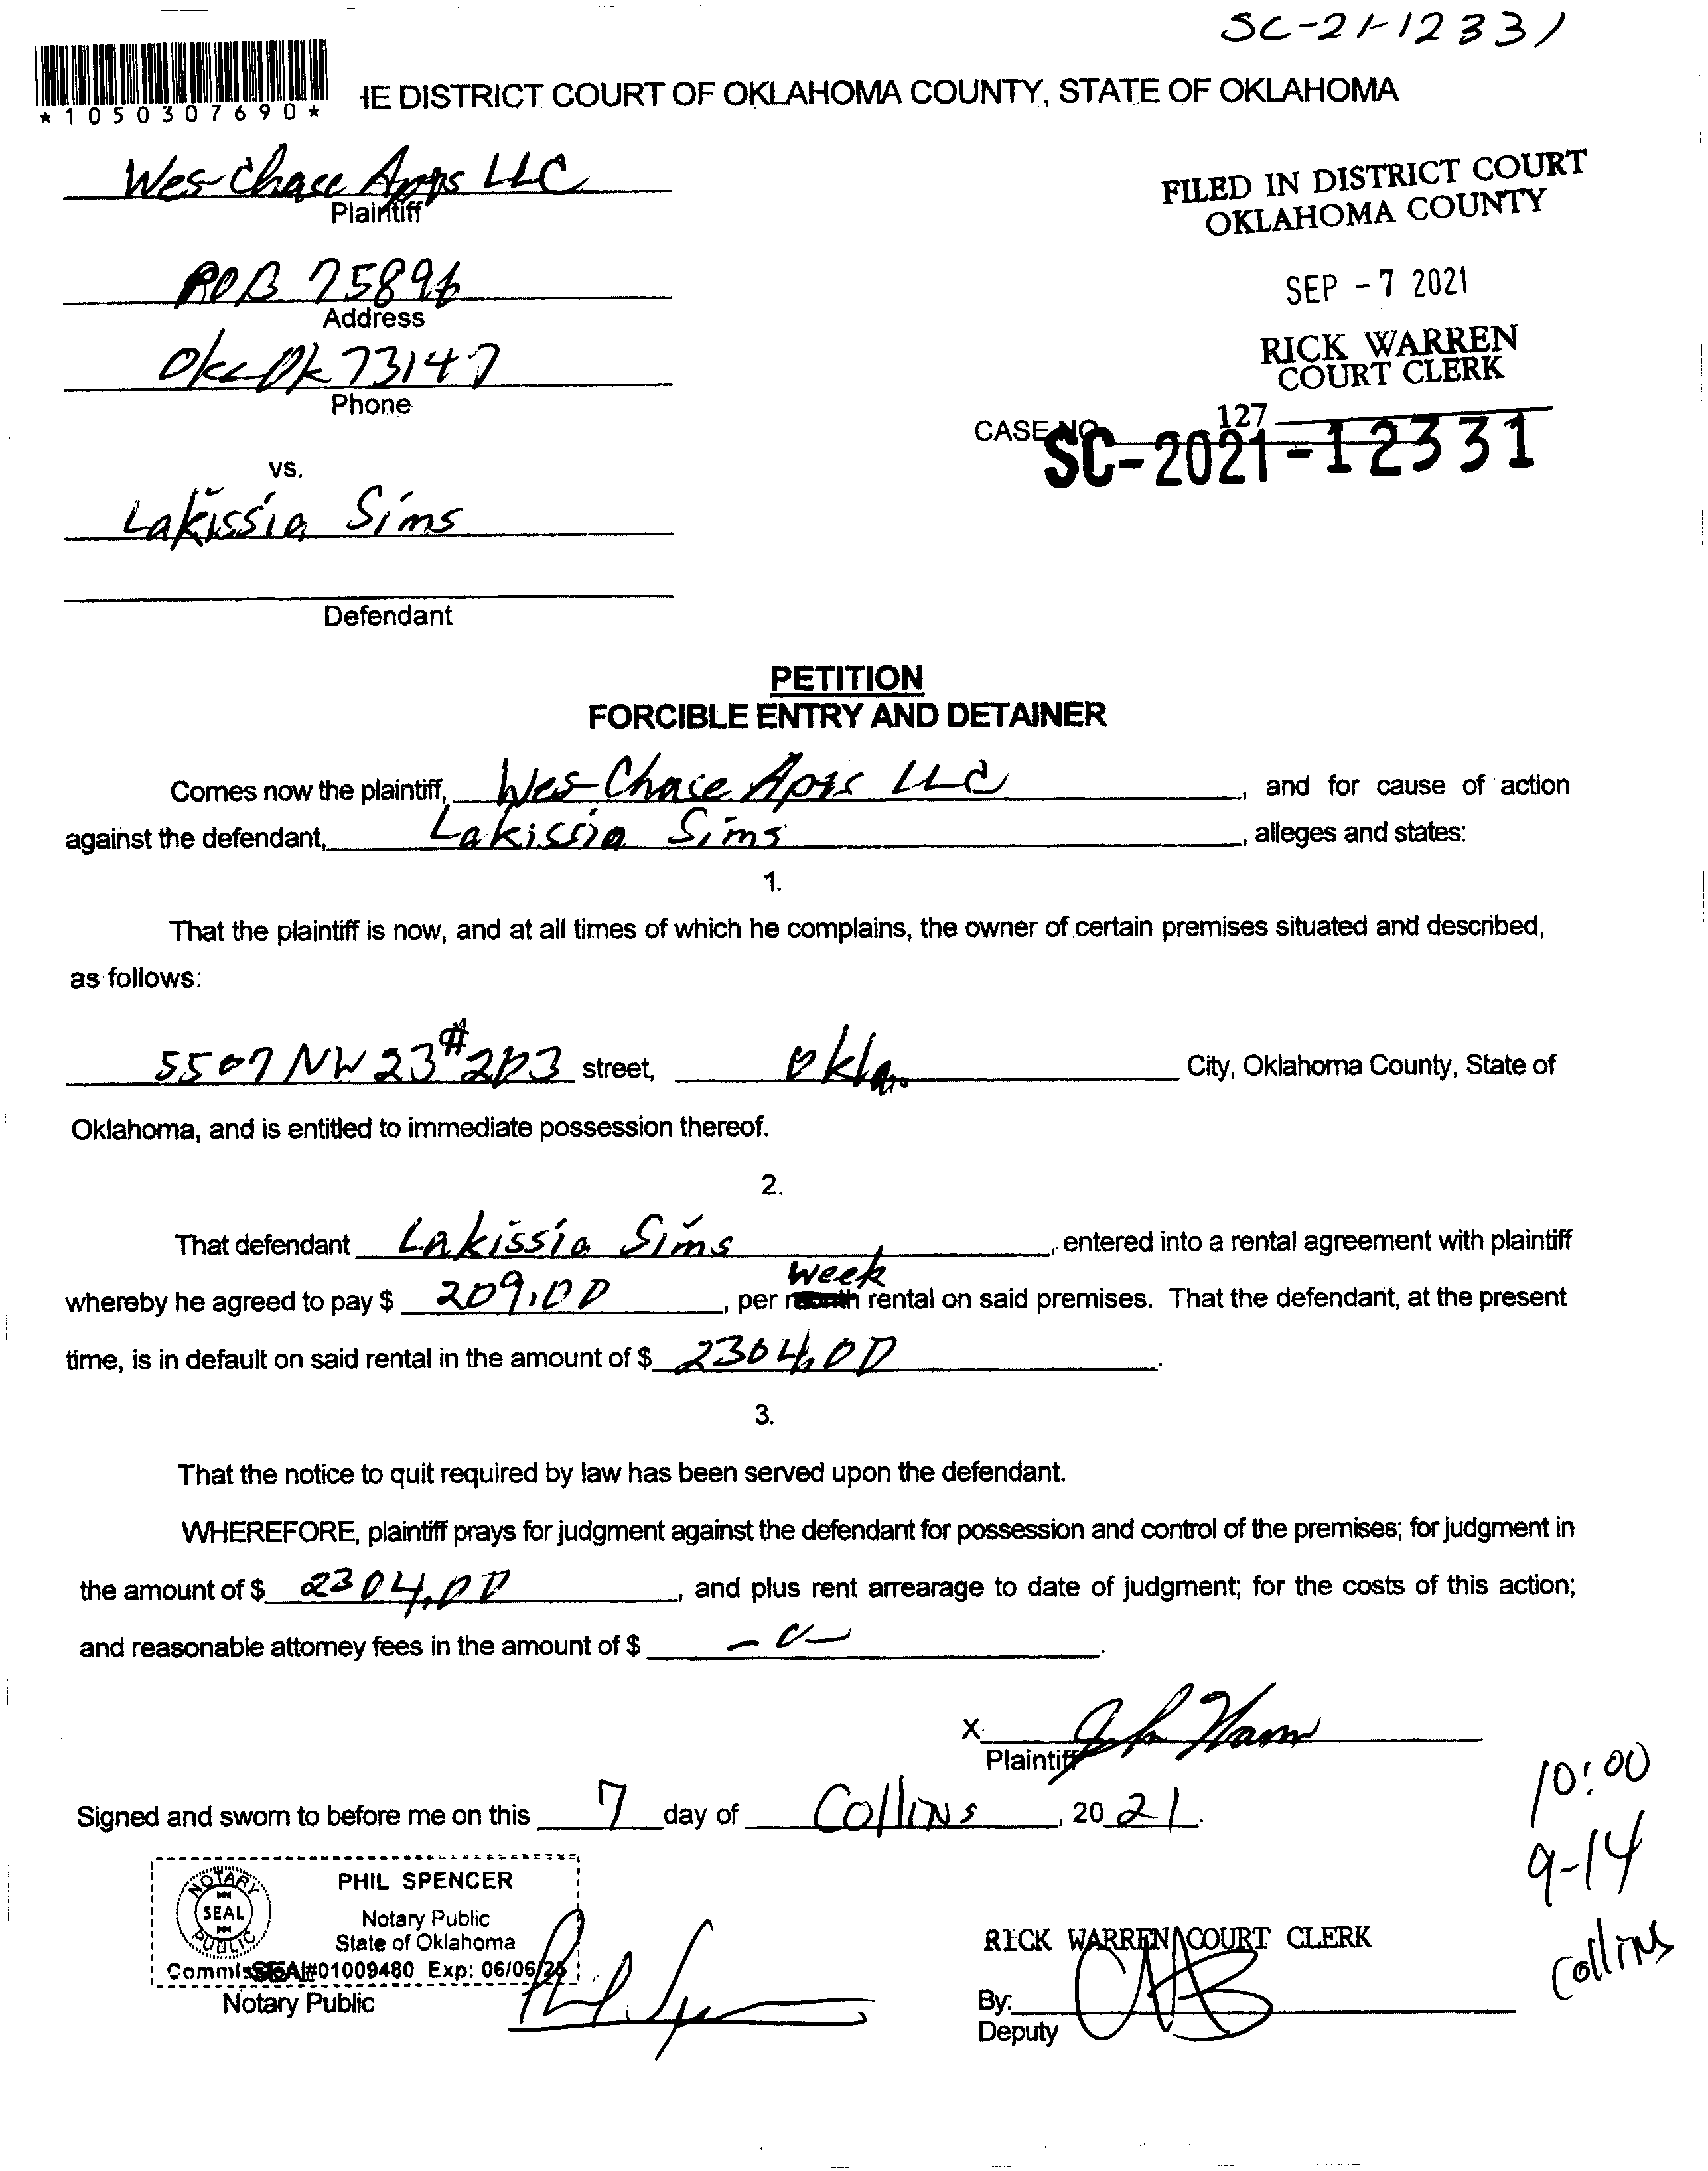 SC-21-12331
*1050307690*
HE DISTRICT COURT OF OKLAHOMA COUNTY, STATE OF OKLAHOMA
Wes-Chase Apts LLC
Plaintiff
FILED IN DISTRICT COURT
OKLAHOMA COUNTY
POB 75896
Address
SEP - 7 2021
Okc Ok 73147
Phone
RICK WARREN
COURT CLERK
127
CASE NO.
SC-2021-12331
vs.
Lakissia Sims
Defendant
PETITION
FORCIBLE ENTRY AND DETAINER
Comes now the plaintiff, Wes-Chase Apts LLC, and for cause of action
against the defendant, Lakissia Sims, alleges and states:
1.
That the plaintiff is now, and at all times of which he complains, the owner of certain premises situated and described,
as follows:
5507 NW 23 #203 street, Okla. City, Oklahoma County, State of
Oklahoma, and is entitled to immediate possession thereof.
2.
That defendant Lakissia Sims, entered into a rental agreement with plaintiff
week
whereby he agreed to pay $ 209.00, per month rental on said premises. That the defendant, at the present
time, is in default on said rental in the amount of $ 2304.00.
3.
That the notice to quit required by law has been served upon the defendant.
WHEREFORE, plaintiff prays for judgment against the defendant for possession and control of the premises; for judgment in
the amount of $ 2304.00, and plus rent arrearage to date of judgment; for the costs of this action;
and reasonable attorney fees in the amount of $ -0-.
X
Plaintiff
10:00
Signed and sworn to before me on this 7 day of Collins, 2021.
9-14
Collins
NOTARY PUBLIC
SEAL
PHIL SPENCER
Notary Public
State of Oklahoma
SEAL #01009480 Exp: 06/06/25
Notary Public
RICK WARREN COURT CLERK
By:
Deputy